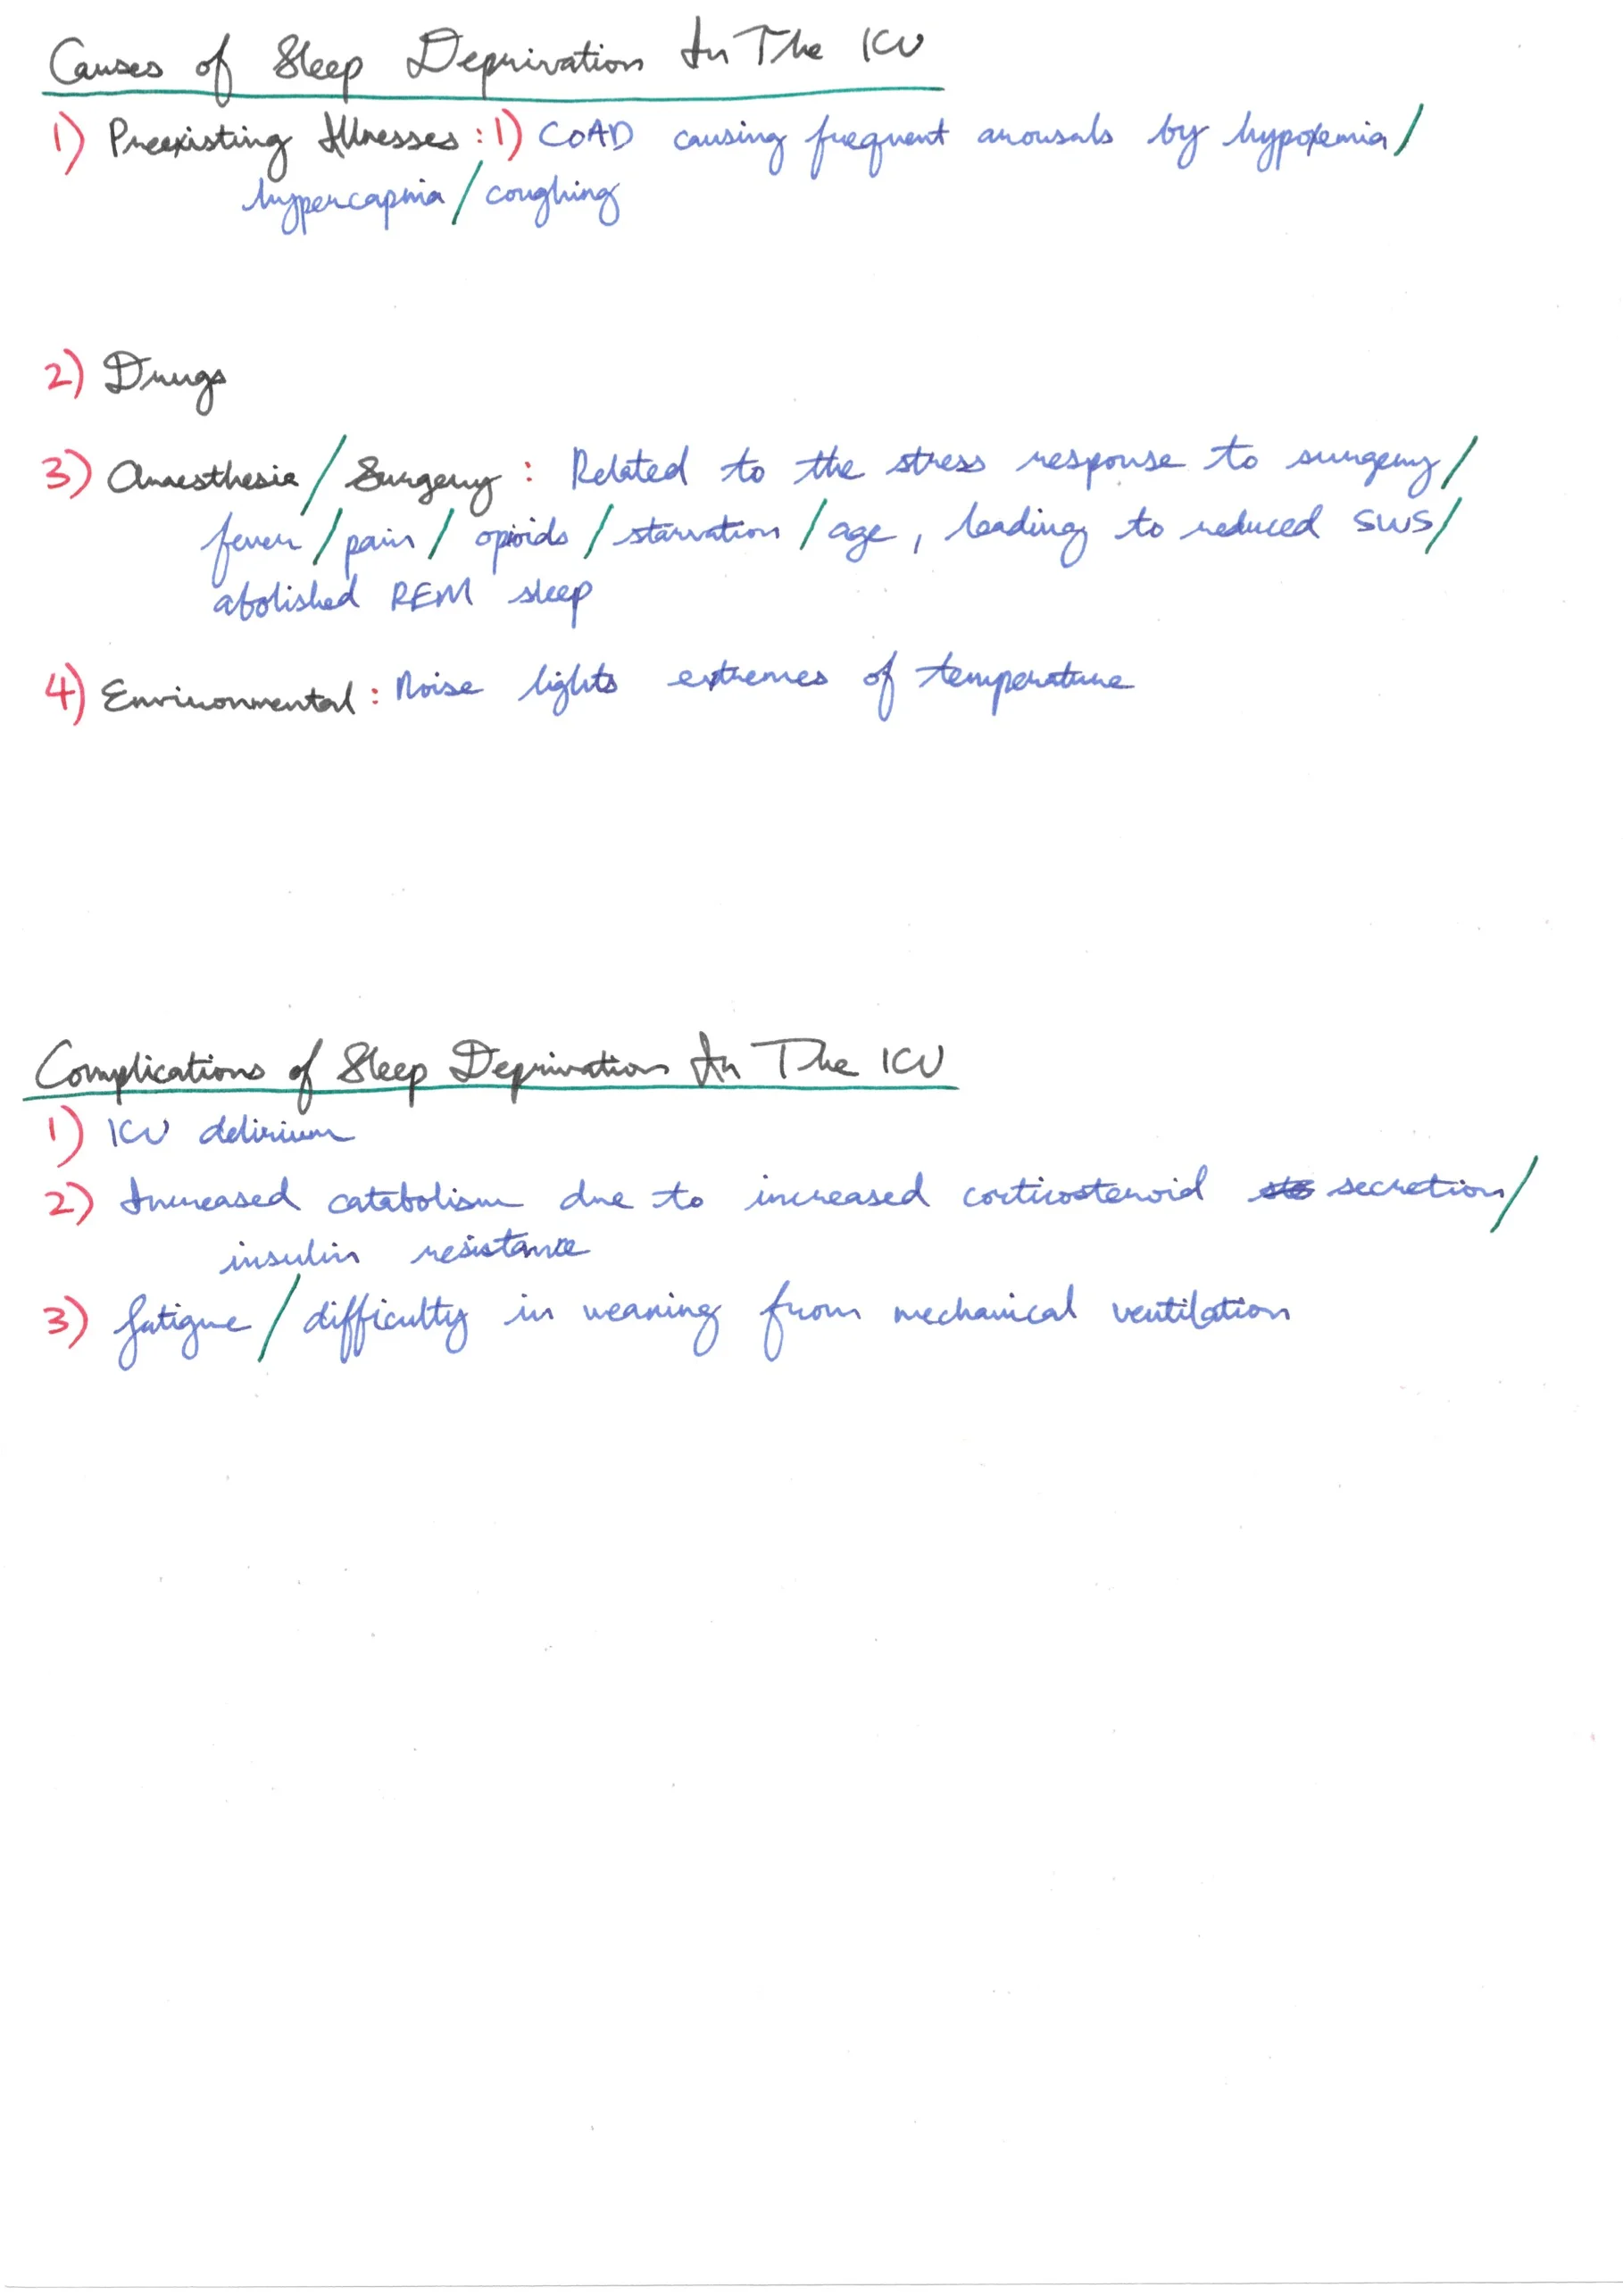 Causes of Sleep Deprivation In The ICU
1) Preexisting Illnesses : 1) COAD causing frequent arousals by hypoxemia/
hypercapnia/coughing
2) Drugs
3) Anaesthesia/Surgery : Related to the stress response to surgery/
fever/pain/opioids/starvation/age, leading to reduced SWS/
abolished REM sleep
4) Environmental : Noise lights extremes of temperature
Complications of Sleep Deprivation In The ICU
1) ICU delirium
2) Increased catabolism due to increased corticosteroid secretion/
insulin resistance
3) fatigue/difficulty in weaning from mechanical ventilation